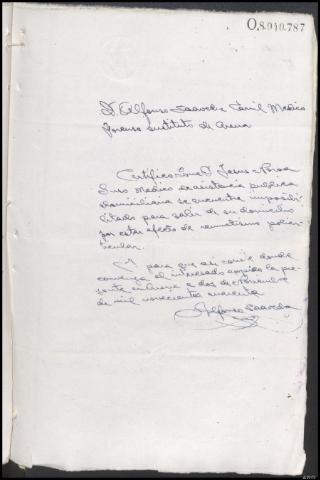 O.8.010.787
D. Alfonso Saavedra Médico
Forense sustituto de
Certifico: Que D. Jesus
Médico de asistencia publica
domiciliaria se encuentra imposibi-
litado para salir de su domicilio
por estar afecto de reumatismo poliar-
ticular.
Y para que asi conste donde
convenga al interesado expido la pre-
sente en a dos de Noviembre
de mil novecientos cuarenta
Alfonso Saavedra